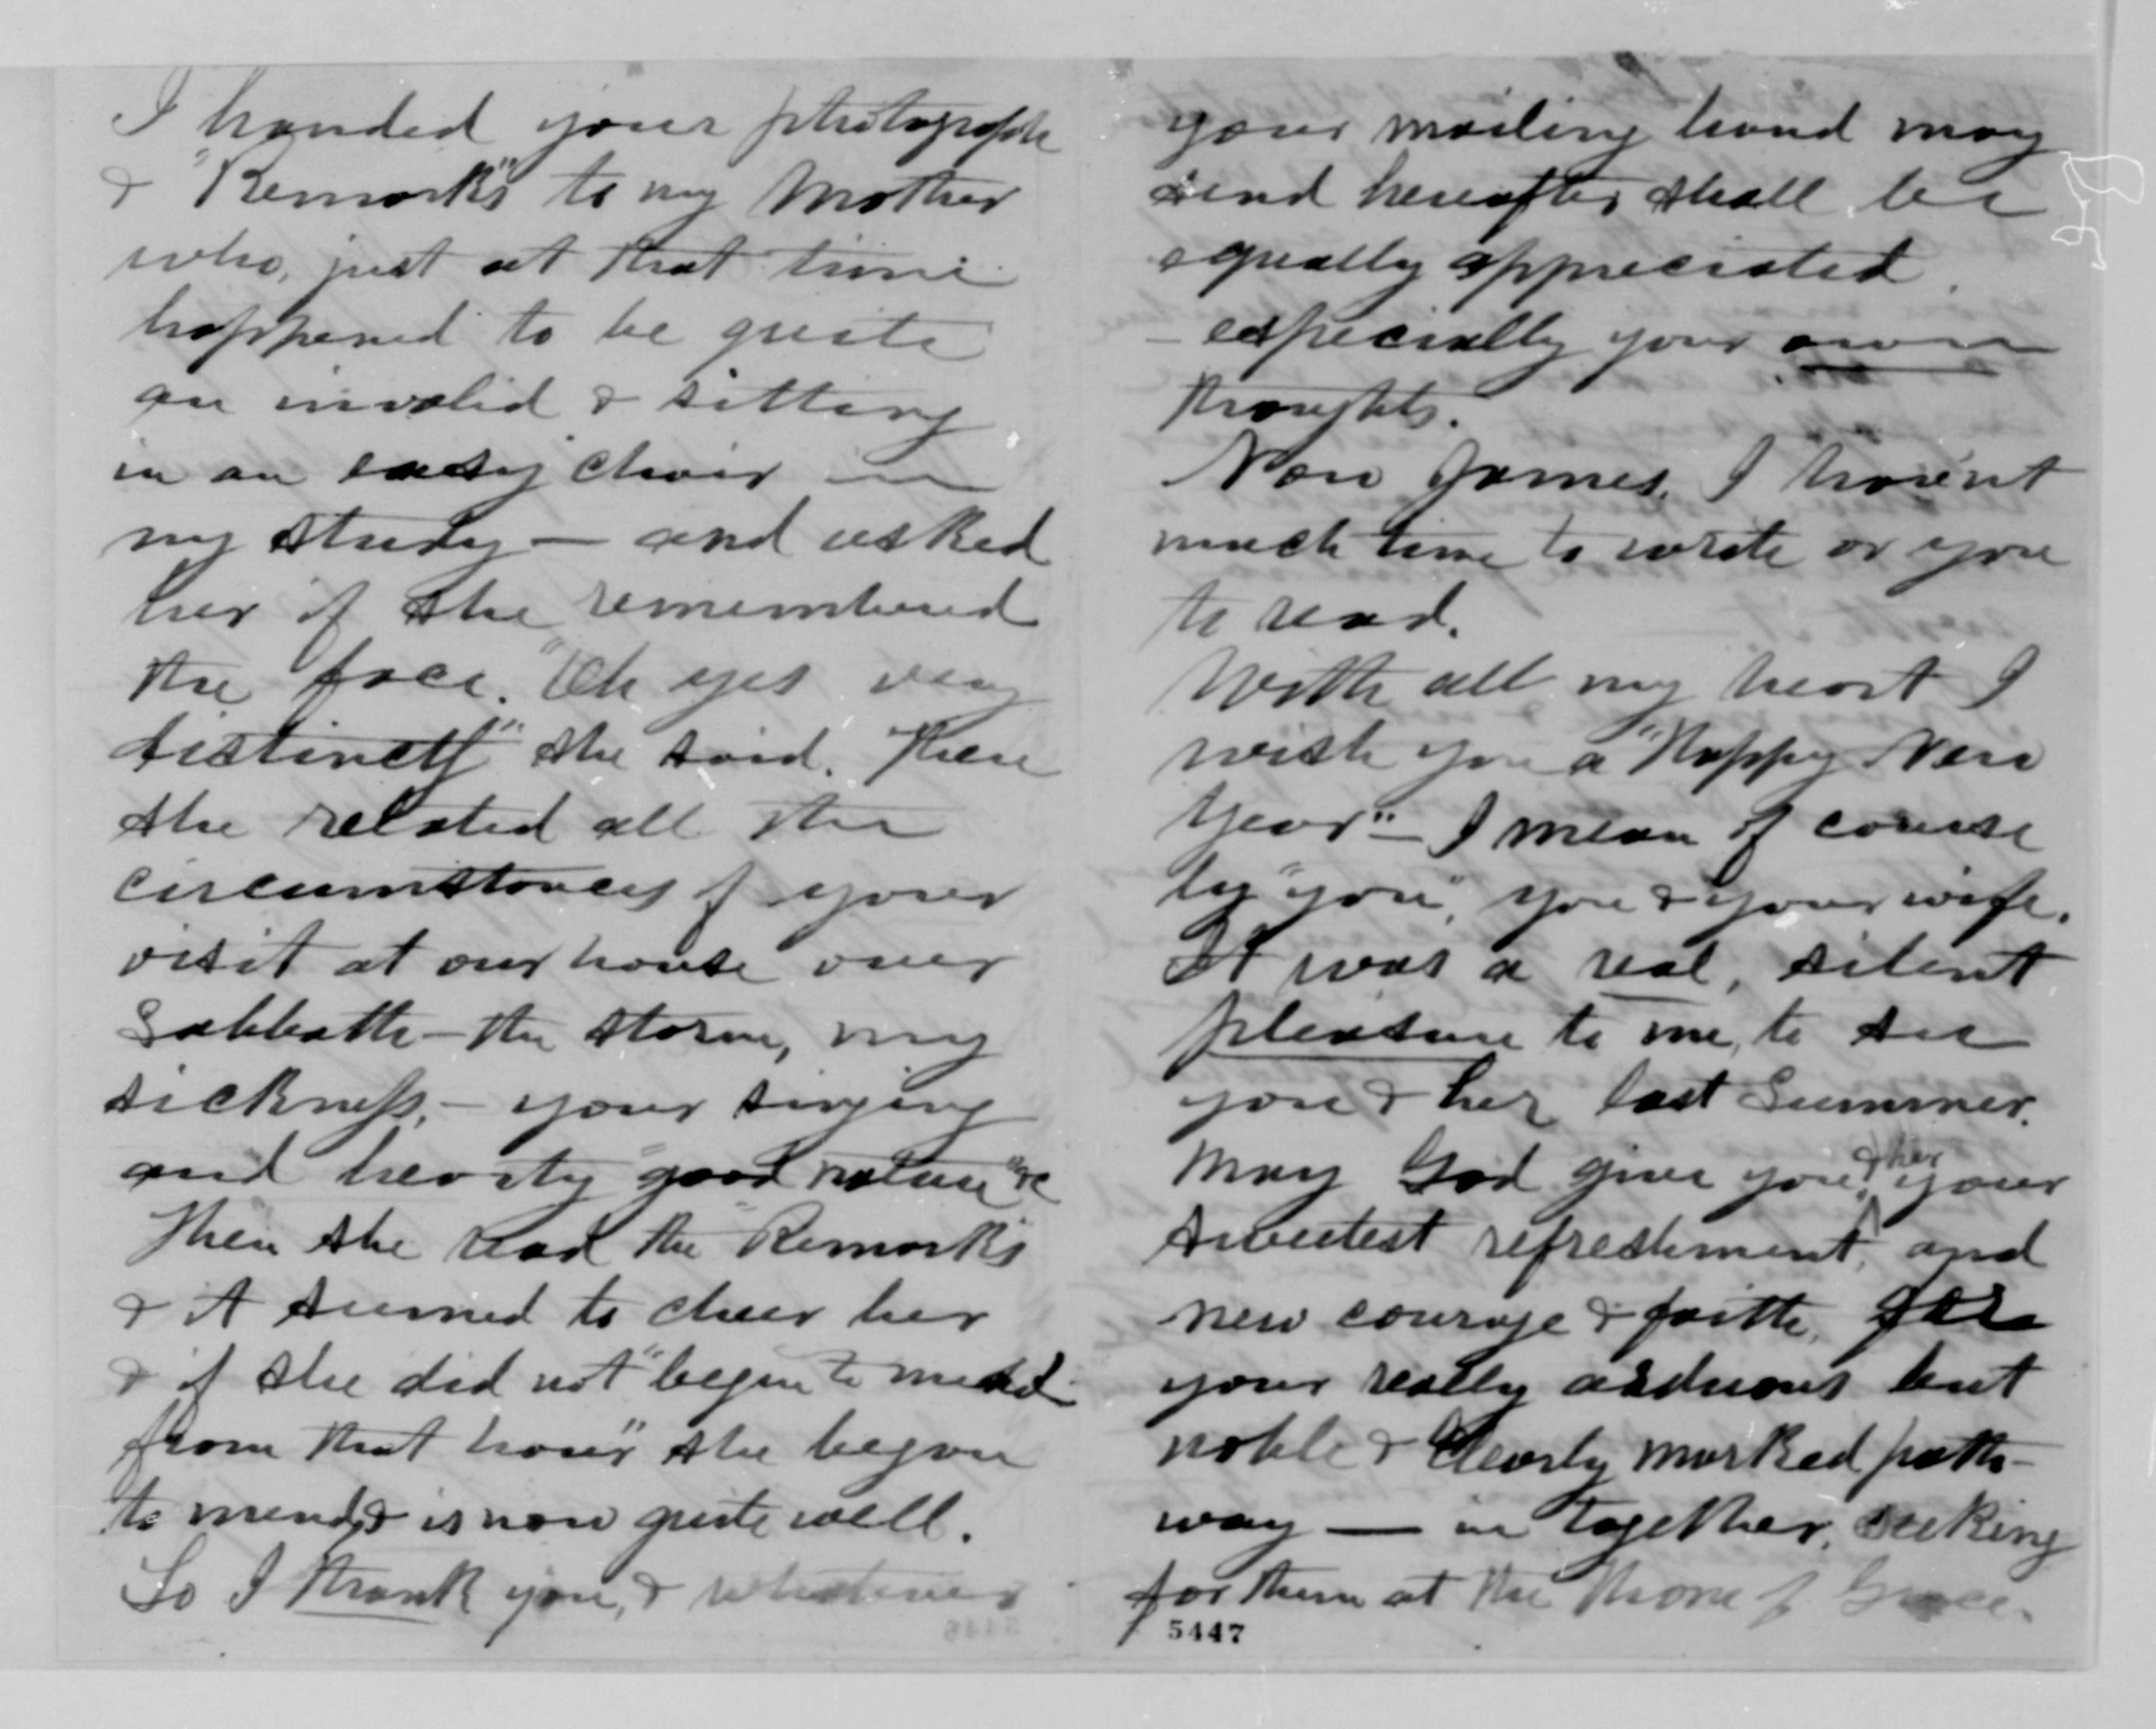 I handed your photograph
& "Remarks" to my Mother
who, just at that time
happened to be quite
an invalid & sitting
in an easy chair in
my study — and asked
her if she remembered
the face. "Oh yes very
distinctly" she said. Then
she related all the
circumstances of your
visit at our house over
Sabbath — the storm, my
sickness, — your singing
and hearty "good nature" &c
Then she read the "Remarks"
& it seemed to cheer her
& if she did not "begin to mend
from that hour" she began
to mend & is now quite well.
So I thank you, & whatever
your mailing hand may
send hereafter shall be
equally appreciated
— especially your own
thoughts.
Now James, I haven't
much time to write or you
to read.
With all my heart I
wish you a "Happy New
Year" — I mean of course
by "you", you & your wife.
It was a real, silent
pleasure to me, to see
you & her last Summer.
May God give you & her your
sweetest refreshment, and
new courage & faith, for
your really arduous but
noble & clearly marked path-
way — in together, seeking
for them at the throne of Grace.
5447